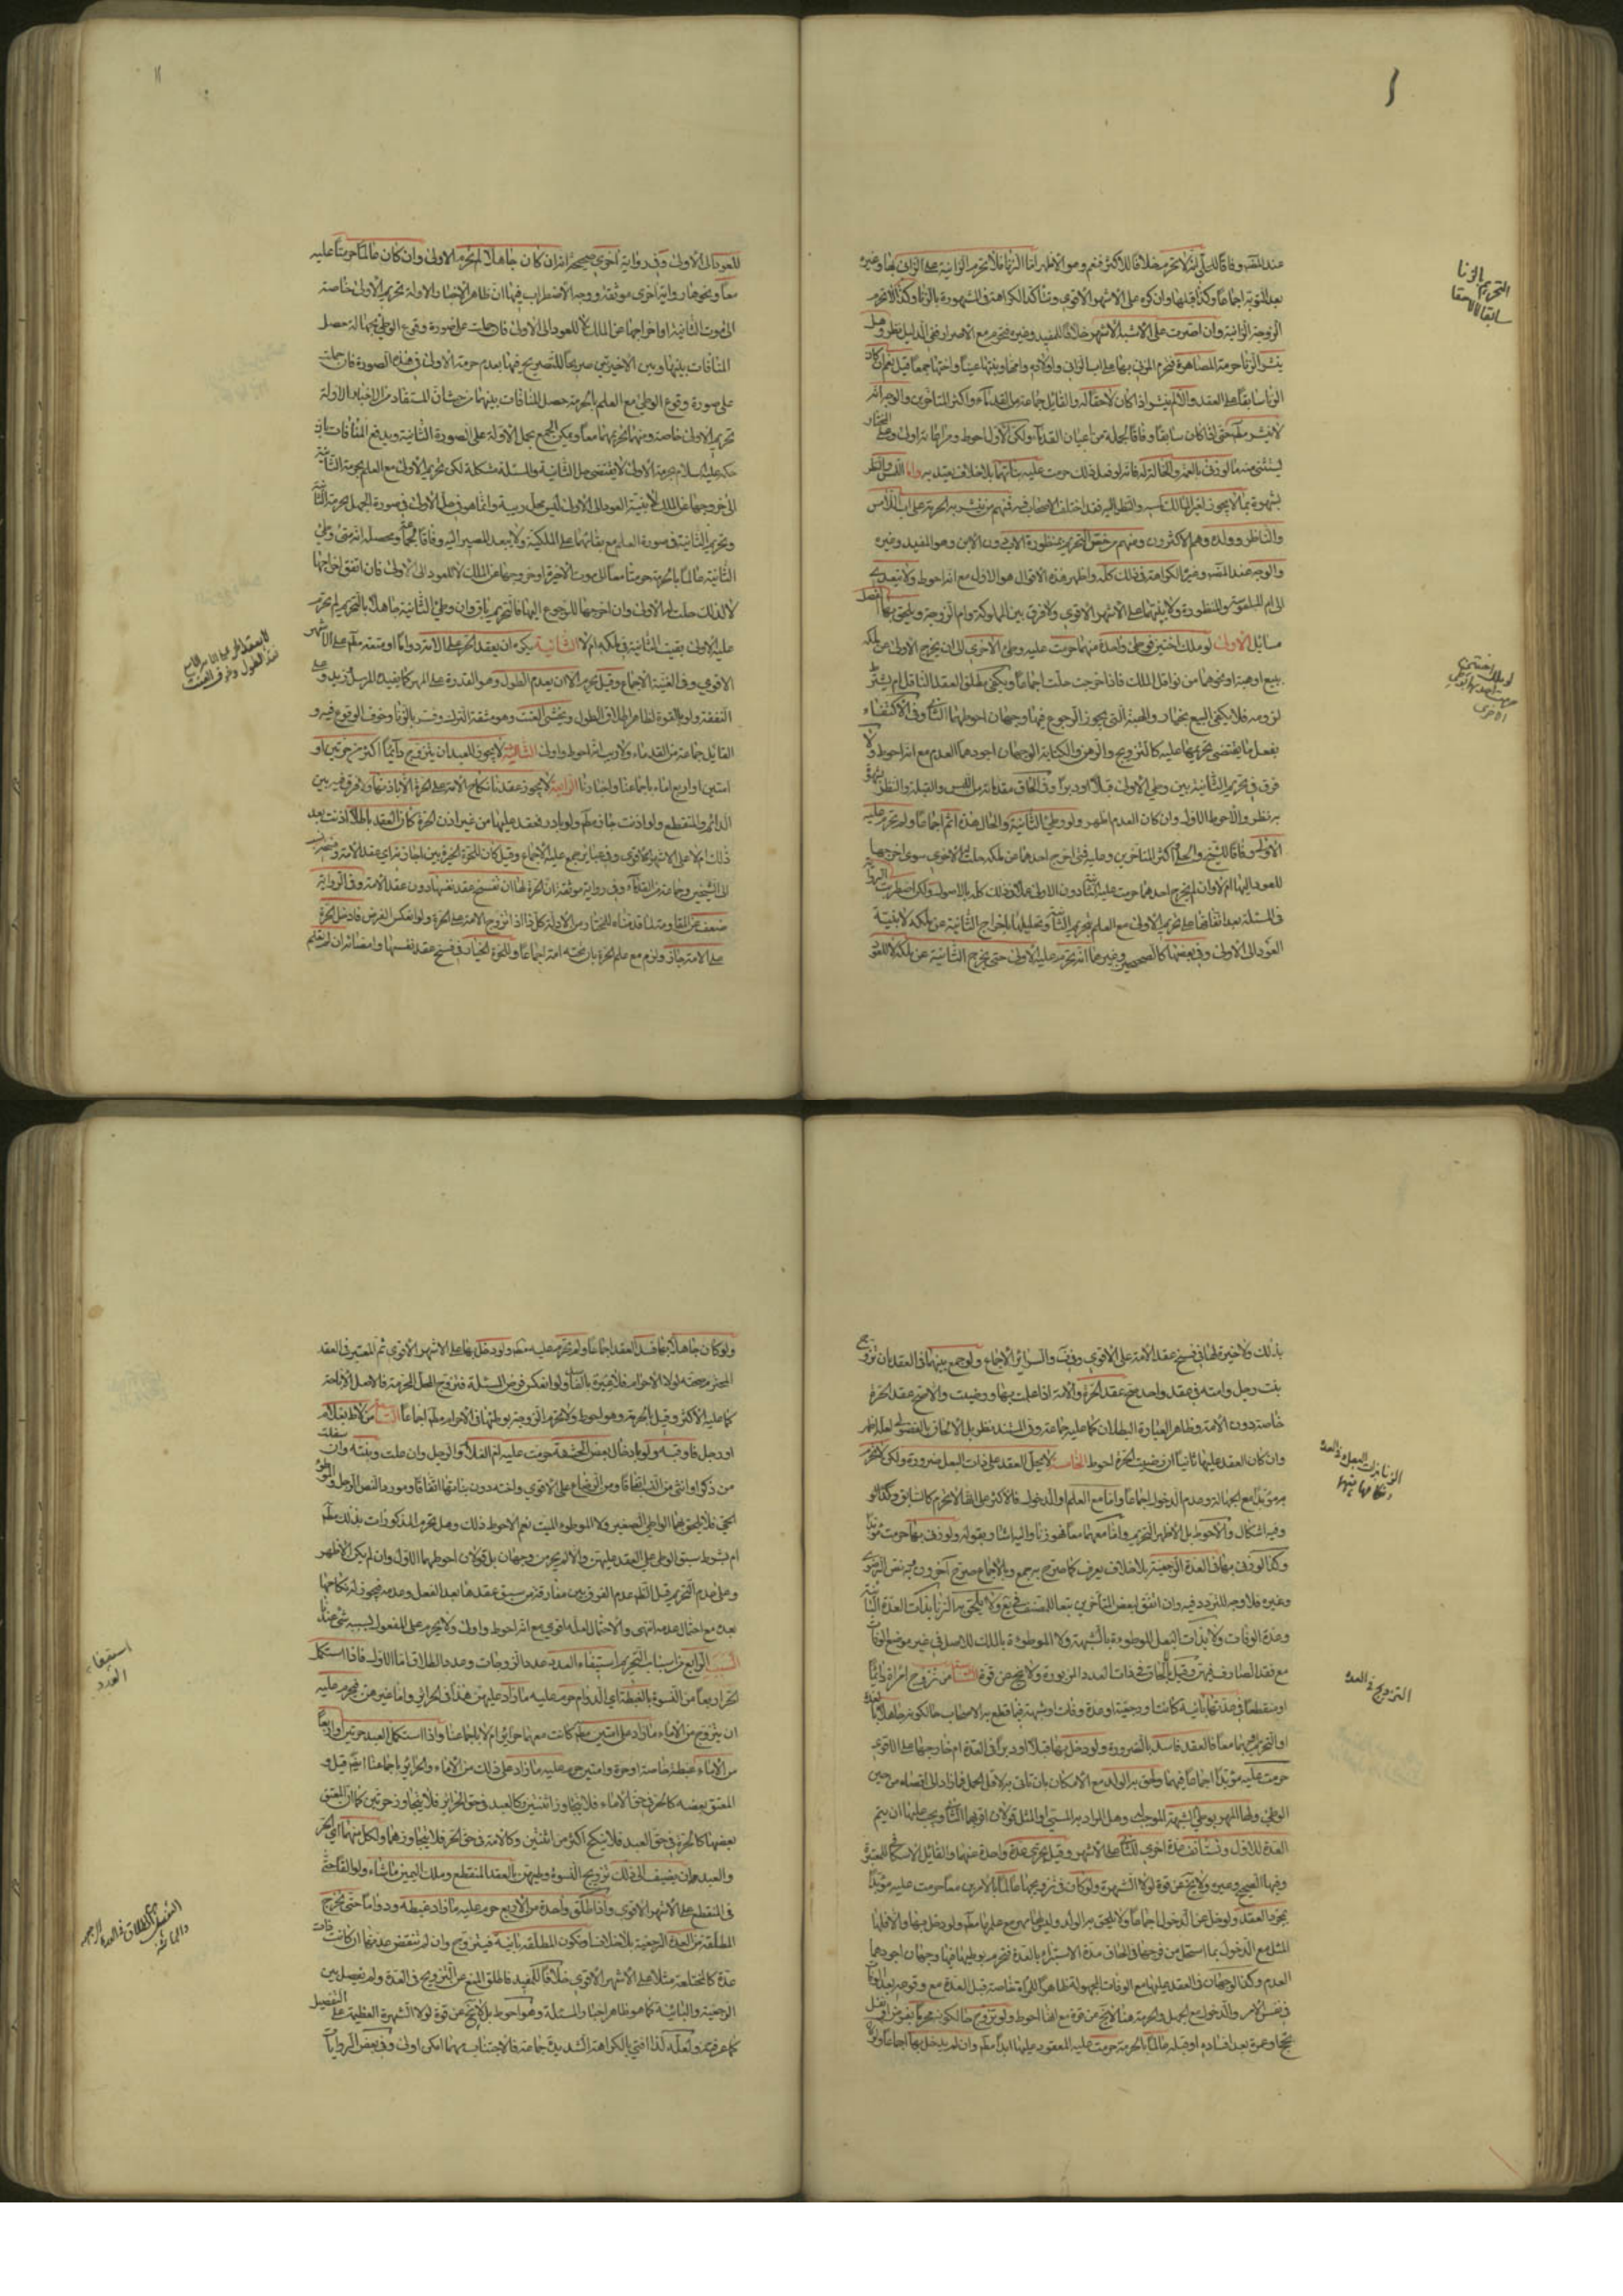 عند المصنف وفاقا للحلي انه لا يحرم خلافا للأكثر فنعم وهو الأظهر اما الزنا فلا تحرم الزانية على الزاني بها وغيره
بعد التوبة اجماعا وكذا قبلها وان كره على الأشهر الأقوى ويتأكد الكراهة في المشهورة بالزنا وكذا لا تحرم
الزوجة الزانية وان اصرت على الأشبه الأشهر خلافا للمفيد وغيره فتحرم مع الإصرار وفي الدليل نظر وهل
ينشر الزنا حرمة المصاهرة فتحرم المزني بها على اب الزاني وأولاده وامها وبنتها عينا واختها جمعا قيل نعم ان كان
الزنا سابقا على العقد والا لم ينشر اذا كان لاحقا له والقائل جماعة من القدماء واكثر المتأخرين والوجه انه
لا ينشر مطلقا حتى اذا كان سابقا وفاقا لجملة من أعيان القدماء ولكن الأول أحوط
يستثنى منه ما لو زنى بالعمة والخالة له فانه لو فعل ذلك حرمت عليه بناتهما بلا خلاف يعتد به واما اللمس والنظر
بشهوة بما لا يجوز لغير المالك لمسه والنظر اليه فقد اختلف الأصحاب فيه فمنهم من ينشر به الحرمة على اب اللامس
والناظر وولده وهم الاكثرون ومنهم من خص التحريم بمنظورة الاب دون الابن وهو المفيد وغيره
والوجه عند المصنف وغيره الكراهة في ذلك كله واظهر هذه الأقوال هو الأول مع انه احوط ولا يتعدى
الى ام الملموسة والمنظورة ولا بنتهما على الأشهر الأقوى ولا فرق بين المملوكة وام الزوجة ويلحق بهذا الفصل
مسائل الأولى لو ملك اختين فوطئ واحدة منهما حرمت عليه وطئ الأخرى الى ان يخرج الأولى عن ملكه
ببيع او هبة او نحوهما من نواقل الملك فاذا خرجت حلت اجماعا ويكفي مطلق العقد الناقل ام يشترط
لزومه فلا يكفي البيع بخيار والهبة التي يجوز الرجوع فيها وجهان احوطهما الثاني وفي الاكتفاء
بفعل ما يقتضي تحريمها عليه كالتزويج والرهن والكتابة الوجهان اجودهما العدم مع انه احوط ولا
فرق في تحريم الثانية بين وطي الأولى قبلا او دبرا وفي الحاق مقدماته من اللمس والقبلة والنظر بشهوة
به نظر والأحوط الأول وان كان العدم اظهر ولو وطئ الثانية والحال هذه اثم اجماعا ولم تحرم عليه
الأولى وفاقا للشيخ والحلي واكثر المتأخرين وعليه فمتى اخرج احدهما عن ملكه حلت الأخرى سواء اخرجها
للعود اليها ام لا وان لم يخرج احدهما حرمت عليه الثانية دون الأولى
في المسئلة بعد اتفاقها على تحريم الأولى مع العلم بتحريم الثانية وتحليلها باخراج الثانية عن ملكه لا بنية
العود الى الأولى وفي بعضها كالصحيح وغيرهما انه تحرم عليه الأولى حتى يخرج الثانية عن ملكه لا للعود
التحريم بالزنا
سابقا لا لاحقا
لو ملك اختين
للعود الى الأولى وفي رواية اخرى صحيحة انه ان كان جاهلا لم تحرم الأولى وان كان عالما حرمتا عليه
معا ونحوها رواية اخرى موثقة ووجه الاضطراب فيها ان ظاهر الاخبار الأولة تحريم الأولى خاصة
الى موت الثانية او اخراجها عن الملك لا للعود الى الأولى فان حملت على صورة وقوع الوطي بجهالة حصل
المنافات بينها وبين الاخيرتين صريحا للتصريح فيها بعدم حرمة الأولى في هذه الصورة فان حملت
على صورة وقوع الوطي مع العلم بالحرمة حصل المنافات بينهما من حيث ان المستفاد من الاخبار الأولة
تحريم الأولى خاصة ومنهما تحريمهما معا ويمكن الجمع بحمل الأولة على الصورة الثانية ويدفع المنافات بان
حكمه عليه السلام بحرمة الأولى لا يقتضي حل الثانية والمسئلة مشكلة لكن تحريم الأولى مع العلم بحرمة الثانية
الى خروجها عن الملك لا بنية العود الى الأولى ليس محل ريبة وانما هو في حل الأولى في صورة الجهل بحرمة الثانية
وتحريم الثانية في صورة العلم مع بقائهما على الملكية ولا يبعد المصير اليه وفاقا لجماعة ومحصله انه متى وطئ
الثانية عالما بالحرمة حرمتا معا الى موت الاخيرة او خروجها عن الملك لا للعود الى الأولى فان اتفق اخراجها
لا لذلك حلت له الأولى وان اخرجها للرجوع اليها فالتحريم باق وان وطئ الثانية جاهلا بالتحريم لم تحرم
عليه الأولى بقيت الثانية في ملكه ام لا الثانية يكره ان يعقد الحر على الامة دواما او متعة مطلقا على الأشهر
الأقوى وفي الغنية الاجماع وقيل يحرم الا ان يعدم الطول وهو القدرة على المهر كما يفيده المرسل
النفقة ولو بالقوة لظاهر اطلاق الطول ويخشى العنت وهو مشقة الترك وفسر بالزنا وخوف الوقوع فيه و
القائل جماعة من القدماء ولا ريب انه احوط واولى الثالثة لا يجوز للعبد ان يتزوج دائما اكثر من حرتين او
امتين او اربع اماء باجماعنا واخبارنا الرابعة لا يجوز عندنا نكاح الامة على الحرة الا باذنها ولا فرق فيه بين
الدائم والمنقطع ولو اذنت جاز مطلقا ولو بادر فعقد عليها من غير اذن الحرة كان العقد باطلا اذنت بعد
ذلك ام لا على الأشهر الأقوى وفي عبائر جمع عليه الاجماع وقيل كان للحرة الخيرة بين اجازته اي عقد الامة وفسخه
الى الشيخين وجماعة من القدماء وفي رواية موثقة ان الحرة لها ان تفسخ عقد نفسها دون عقد الامة وفي الرواية
ضعف عن المقاومة لما قدمناه للمختار من الأدلة كل ذا اذا تزوج الامة على الحرة ولو انعكس الفرض فادخل الحرة
على الامة جاز ولزم مع علم الحرة بان تحته امة اجماعا وللحرة الخيار في فسخ عقد نفسها وامضائه ان لم تعلم
بذلك ولا خيرة لها في فسخ عقد الامة على الأقوى وفي السرائر الاجماع ولو جمع بينهما في العقد بان تزوج
بنت رجل وامته في عقد واحد صح عقد الحرة والامة اذا علمت بها ورضيت والا صح عقد الحرة
خاصة دون الامة وظاهر العبارة البطلان كما عليه جماعة وفيه المسند نظر بل الالحاق بالفضولي لعله اظهر
وان كان العقد عليها ثانيا ان رضيت الحرة احوط الخامسة لا يحل العقد على ذات البعل ضرورة ولكن لا تحرم
به مؤبدا مع الجهالة وعدم الدخول اجماعا واما مع العلم او الدخول فالأكثر على انه لا تحرم كالسابق
وفيه اشكال والأحوط بل الأظهر التحريم واما معهما معا فهو زنا واليه اشار بقوله ولو زنى بها حرمت مؤبدا
وكذا لو زنى بها في العدة الرجعية بلا خلاف يعرف كما صرح به جمع وبالاجماع صرح آخرون وبه نص الرضوي
وغيره فلا وجه للتردد فيه وان اتفق لبعض المتأخرين تبعا للمصنف في يع ولا يلحق به الزنا بذات العدة البائنة
وعدة الوفات ولا بذات البعل الموطوءة بالشبهة ولا الموطوءة بالملك للأصل في غير موضع الوفاق
مع فقد الصارف فيهن وقيل بالحاق ذات العدد المزبورة ولا يخلو عن قوة السادسة من تزوج امراة دائما
او منقطعا في عدتها بائنة كانت او رجعية او عدة وفات او شبهة فيما قطع به الأصحاب حال كونه جاهلا بالعدة
او التحريم او بهما معا فالعقد فاسد بالضرورة ولو دخل بها قبلا او دبرا في العدة ام خارجها على الأقوى
حرمت عليه مؤبدا اجماعا فيهما ولحق به الولد مع الامكان بان تاتي به لاقل الحمل فما زاد الى اقصاه من حين
الوطي ولها المهر بوطي الشبهة الموجب له وهل المراد به المسمى او المثل قولان اقربهما الثاني ويجب عليها ان يتم
العدة للأول وتستأنف عدة اخرى للثاني على الأشهر وقيل يجزي عدة واحدة عنهما والقائل الاسكافي للمعتبرة
وفيها الصحيح وغيره ولا يخلو عن قوة لولا الشهرة ولو كان في تزويجها عالما بالامرين معا حرمت عليه مؤبدا
بمجرد العقد ولو خلى عن الدخول اجماعا ولا يلحق به الولد ولا مهر مع علمها مطلقا ولو دخل بها والا فلها
المثل مع الدخول بما استحل من فرجها وفي الحاق مدة الاستبراء بالعدة فتحرم بوطيها فيها وجهان اجودهما
العدم وكذا الوجهان في العقد عليها مع الوفات المجهولة ظاهرا للمرأة خاصة قبل العدة مع وقوعه بعد الوفات
في نفس الامر والدخول مع الجهل والحرمة هنا لا يخلو عن قوة مع انها احوط ولو تزوج حال كونه محرما بفرض او نفل
بحج او عمرة بعد افساده او قبله عالما بالحرمة حرمت عليه المعقود عليها ابدا مطلقا وان لم يدخل بها اجماعا
الزنا بذات البعل وذات العدة
التزويج في العدة
ولو كان جاهلا بها فسد العقد اجماعا ولم تحرم عليه مطلقا ولو دخل بها على الأشهر الأقوى ثم المعتبر في العقد
المحرم صحته لولا الاحرام فلا عبرة بالفاسد ولو انعكس فرض المسئلة فتزوج المحل المحرمة فالأصل الإباحة
كما عليه الأكثر وقيل بالحرمة وهو احوط ولا تحرم الزوجة بوطئها في الاحرام مطلقا اجماعا السابعة من لاط بغلام
او رجل فاوقبه ولو بادخال بعض الحشفة حرمت عليه ام الغلام والرجل وان علت وبنته وان سفلت
من ذكر او انثى من النسب اتفاقا ومن الرضاع على الأقوى واخته دون بناتها اتفاقا ومورد النص الرجل والموطوء
الحي فلا يلحق بهما الواطي الصغير ولا الموطوء الميت نعم الأحوط ذلك وهل تحرم المذكورات بذلك مطلقا
ام بشرط سبق الوطي على العقد عليهن والا لم يحرمن وجهان بل قولان احوطهما الأول وان لم يكن الأظهر
وعلى عدم التحريم قيل الظاهر عدم الفرق بين مفارقة من سبق عقدها بعد الفعل وعدمه فيجوز له نكاحها
بعده مع احتمال عدمه انتهى والاحتمال لعله اقوى مع انه احوط واولى ولا يحرم على المفعول بسببه شئ عندنا
السبب الرابع من اسباب التحريم استيفاء العدد عدد الزوجات وعدد الطلاق اما الأول فاذا استكمل
الحر اربعا من النسوة بالغبطة اي الدوام حرم عليه ما زاد عليهن هذا في الحرائر واما غيرهن فيحرم عليه
ان يتزوج من الاماء ما زاد على امتين مطلقا كانت معهما حرائر ام لا باجماعنا واذا استكمل العبد حرتين او اربعا
من الاماء غبطة خاصة او حرة وامتين حرم عليه ما زاد على ذلك من الاماء والحرائر باجماعنا ايضا قيل و
المعتق بعضه كالحر في حق الاماء فلا يتجاوز اثنتين وكالعبد في حق الحرائر فلا يتجاوز حرتين كما ان المعتق
بعضها كالحرة في حق العبد فلا ينكح اكثر من اثنتين وكالامة في حق الحر فلا يتجاوزهما ولكل منهما اي الحر
والعبد ان يضيف الى ذلك تزويج النسوة وطيهن بالعقد المنقطع وملك اليمين ما شاء ولو الفا حتى
في المنقطع على الأشهر الأقوى واذا طلق واحدة من الأربع حرم عليه ما زاد غبطة ودواما حتى تخرج
المطلقة من العدة الرجعية بلا خلاف او تكون المطلقة بائنة فيتزوج وان لم تنقض عدتها ان كانت ذات
عدة كالمختلعة مثلا على الأشهر الأقوى خلافا للمفيد فاطلق المنع عن التزويج في العدة ولم يفصل بين
الرجعية والبائنة كما هو ظاهر اخبار المسئلة وهو احوط بل لا يخلو عن قوة لولا الشهرة العظيمة على التفصيل
كما عرفته ولعله لذا افتى بالكراهة الشديدة جماعة فالاجتناب مهما امكن اولى وفي بعض الروايات
استيفاء
العدد